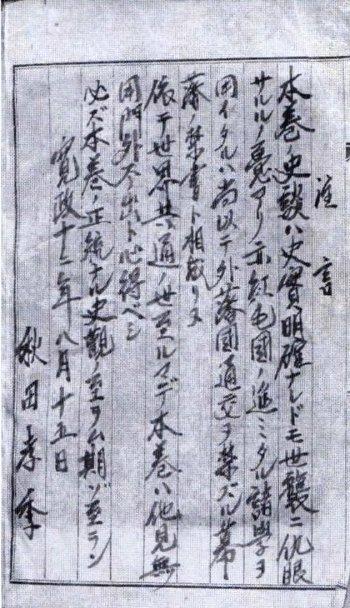 注言
本巻ノ史談ハ史實ノ明確ナレドモ世襲ニ仇眼
サルルノ憂アリ亦紅毛國ノ進ミタル諸學ヲ
用イタルハ尚以テ外藩國通交ヲ禁ズル幕
藩ノ禁書ト相成リヌ
依テ世界共ニ通ノ世至ルマデ本巻ハ他見無
用門外不出ト心得ベシ
必ズ本巻ノ正統ナル史觀ノ至ヲム期ゾ至ラン
寛政十二年八月十五日
秋田孝季